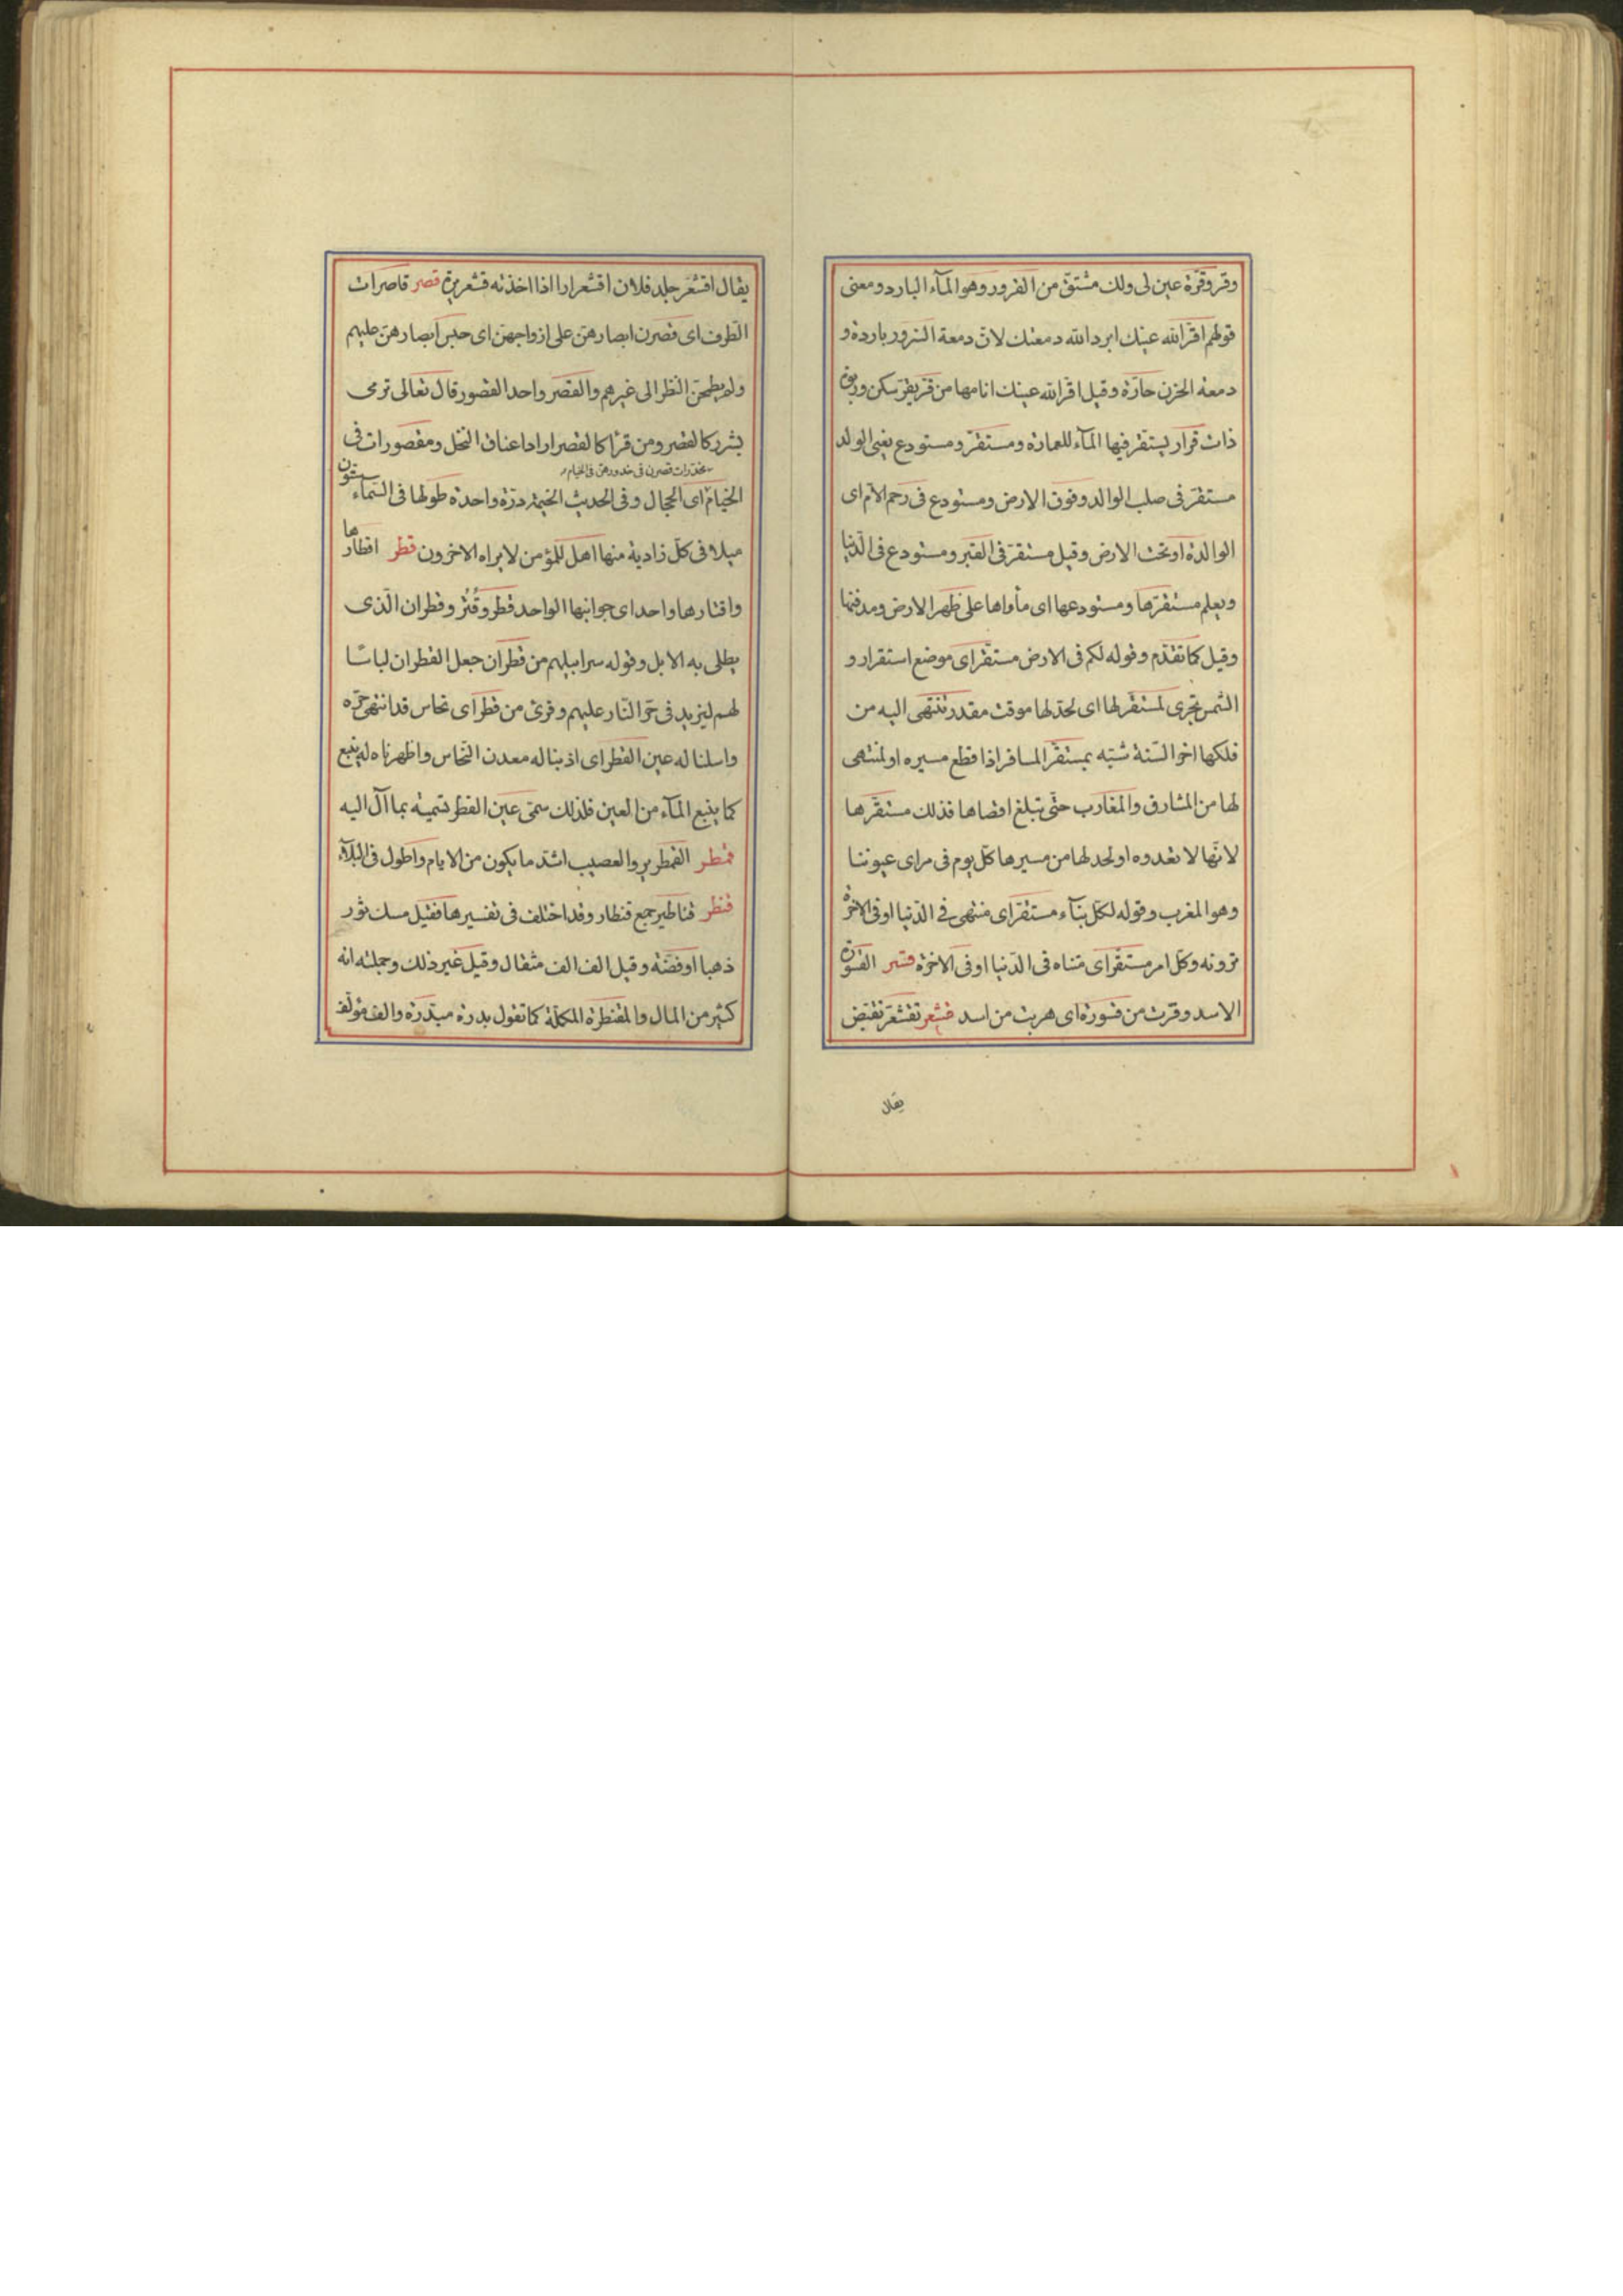 وقر وقرّة عين لى ولك مشتقّ من القرور وهو المآء البارد ومعنى
قولهم اقرّ الله عينك ابرد الله دمعتك لانّ دمعة السّرور باردة و
دمعة الحزن حارّة وقيل اقرّ الله عينك انامها من قرّ يقرّ سكن وربوة
ذات قرار يستقرّ فيها المآء للعمارة ومستقرّ ومستودع يعنى الولد
مستقرّ فى صلب الوالد وفوق الارض ومستودع فى رحم الامّ اى
الوالدة او تحت الارض وقيل مستقرّ فى القبر ومستودع فى الدّنيا
ويعلم مستقرّها ومستودعها اى مأواها على ظهر الارض ومدفنها
وقيل كما تقدّم وقوله لكم فى الارض مستقرّ اى موضع استقرار و
الشّمس تجرى لمستقرّ لها اى لحدّ لها موقت مقدر تنتهى اليه من
فلكها اخر السّنة شبّه بمستقرّ المسافر اذا قطع مسيره او لمنتهى
لها من المشارق والمغارب حتّى تبلغ اقصاها فذلك مستقرّها
لانّها لا تعدوه او لحد لها من مسيرها كلّ يوم فى مراى عيوننا
وهو المغرب وقوله لكلّ نبآء مستقرّ اى منتهى فى الدّنيا او فى الاخرة
ترونه وكلّ امر مستقرّ اى متناه فى الدّنيا او فى الاخرة قسر القسورة
الاسد وفرّت من قسورة اى هربت من اسد قشعر تقشعرّ تقبّض
يقال
يقال اقشعرّ جلد فلان اقشعرارا اذا اخذته قشعريرة قصر قاصرات
الطّرف اى قصرن ابصارهنّ على ازواجهنّ اى حبس ابصارهنّ عليهم
ولم يطمحن النّظر الى غيرهم والقصر واحد القصور قال تعالى ترمى
بشرر كالقصر ومن قرأ كالقصر اراد اعناق النخل ومقصورات فى
مخدّرات قصرن فى خدورهنّ فى الخيام
الخيام اى الحجال وفى الحديث الخيمة درّة واحدة طولها فى السّماء ستّون
ميلا فى كلّ زاوية منها اهل للمؤمن لا يراه الاخرون قطر اقطارها
واقتارها واحد اى جوانبها الواحد قطر وقُتُر وقطران الّذى
يطلى به الابل وقوله سرابيلهم من قطران جعل القطران لباسًا
لهم ليزيد فى حرّ النّار عليهم وقرئ من قطر اى نحاس قد انتهى حرّه
واسلنا له عين القطر اى اذبنا له معدن النّحاس واظهرناه له ينبع
كما ينبع المآء من العين فلذلك سمّى عين القطر تسمية بما آل اليه
قمطر القمطرير والعصيب اشدّ ما يكون من الايام واطول فى البلآء
قنطر قناطير جمع قنطار وقد اختلف فى تفسيرها فقيل مسك ثور
ذهبا او فضّة وقيل الف الف مثقال وقيل غير ذلك وجملته انه
كثير من المال والمقنطرة المكمّلة كما تقول بدرة مبدّرة والف مؤلّف